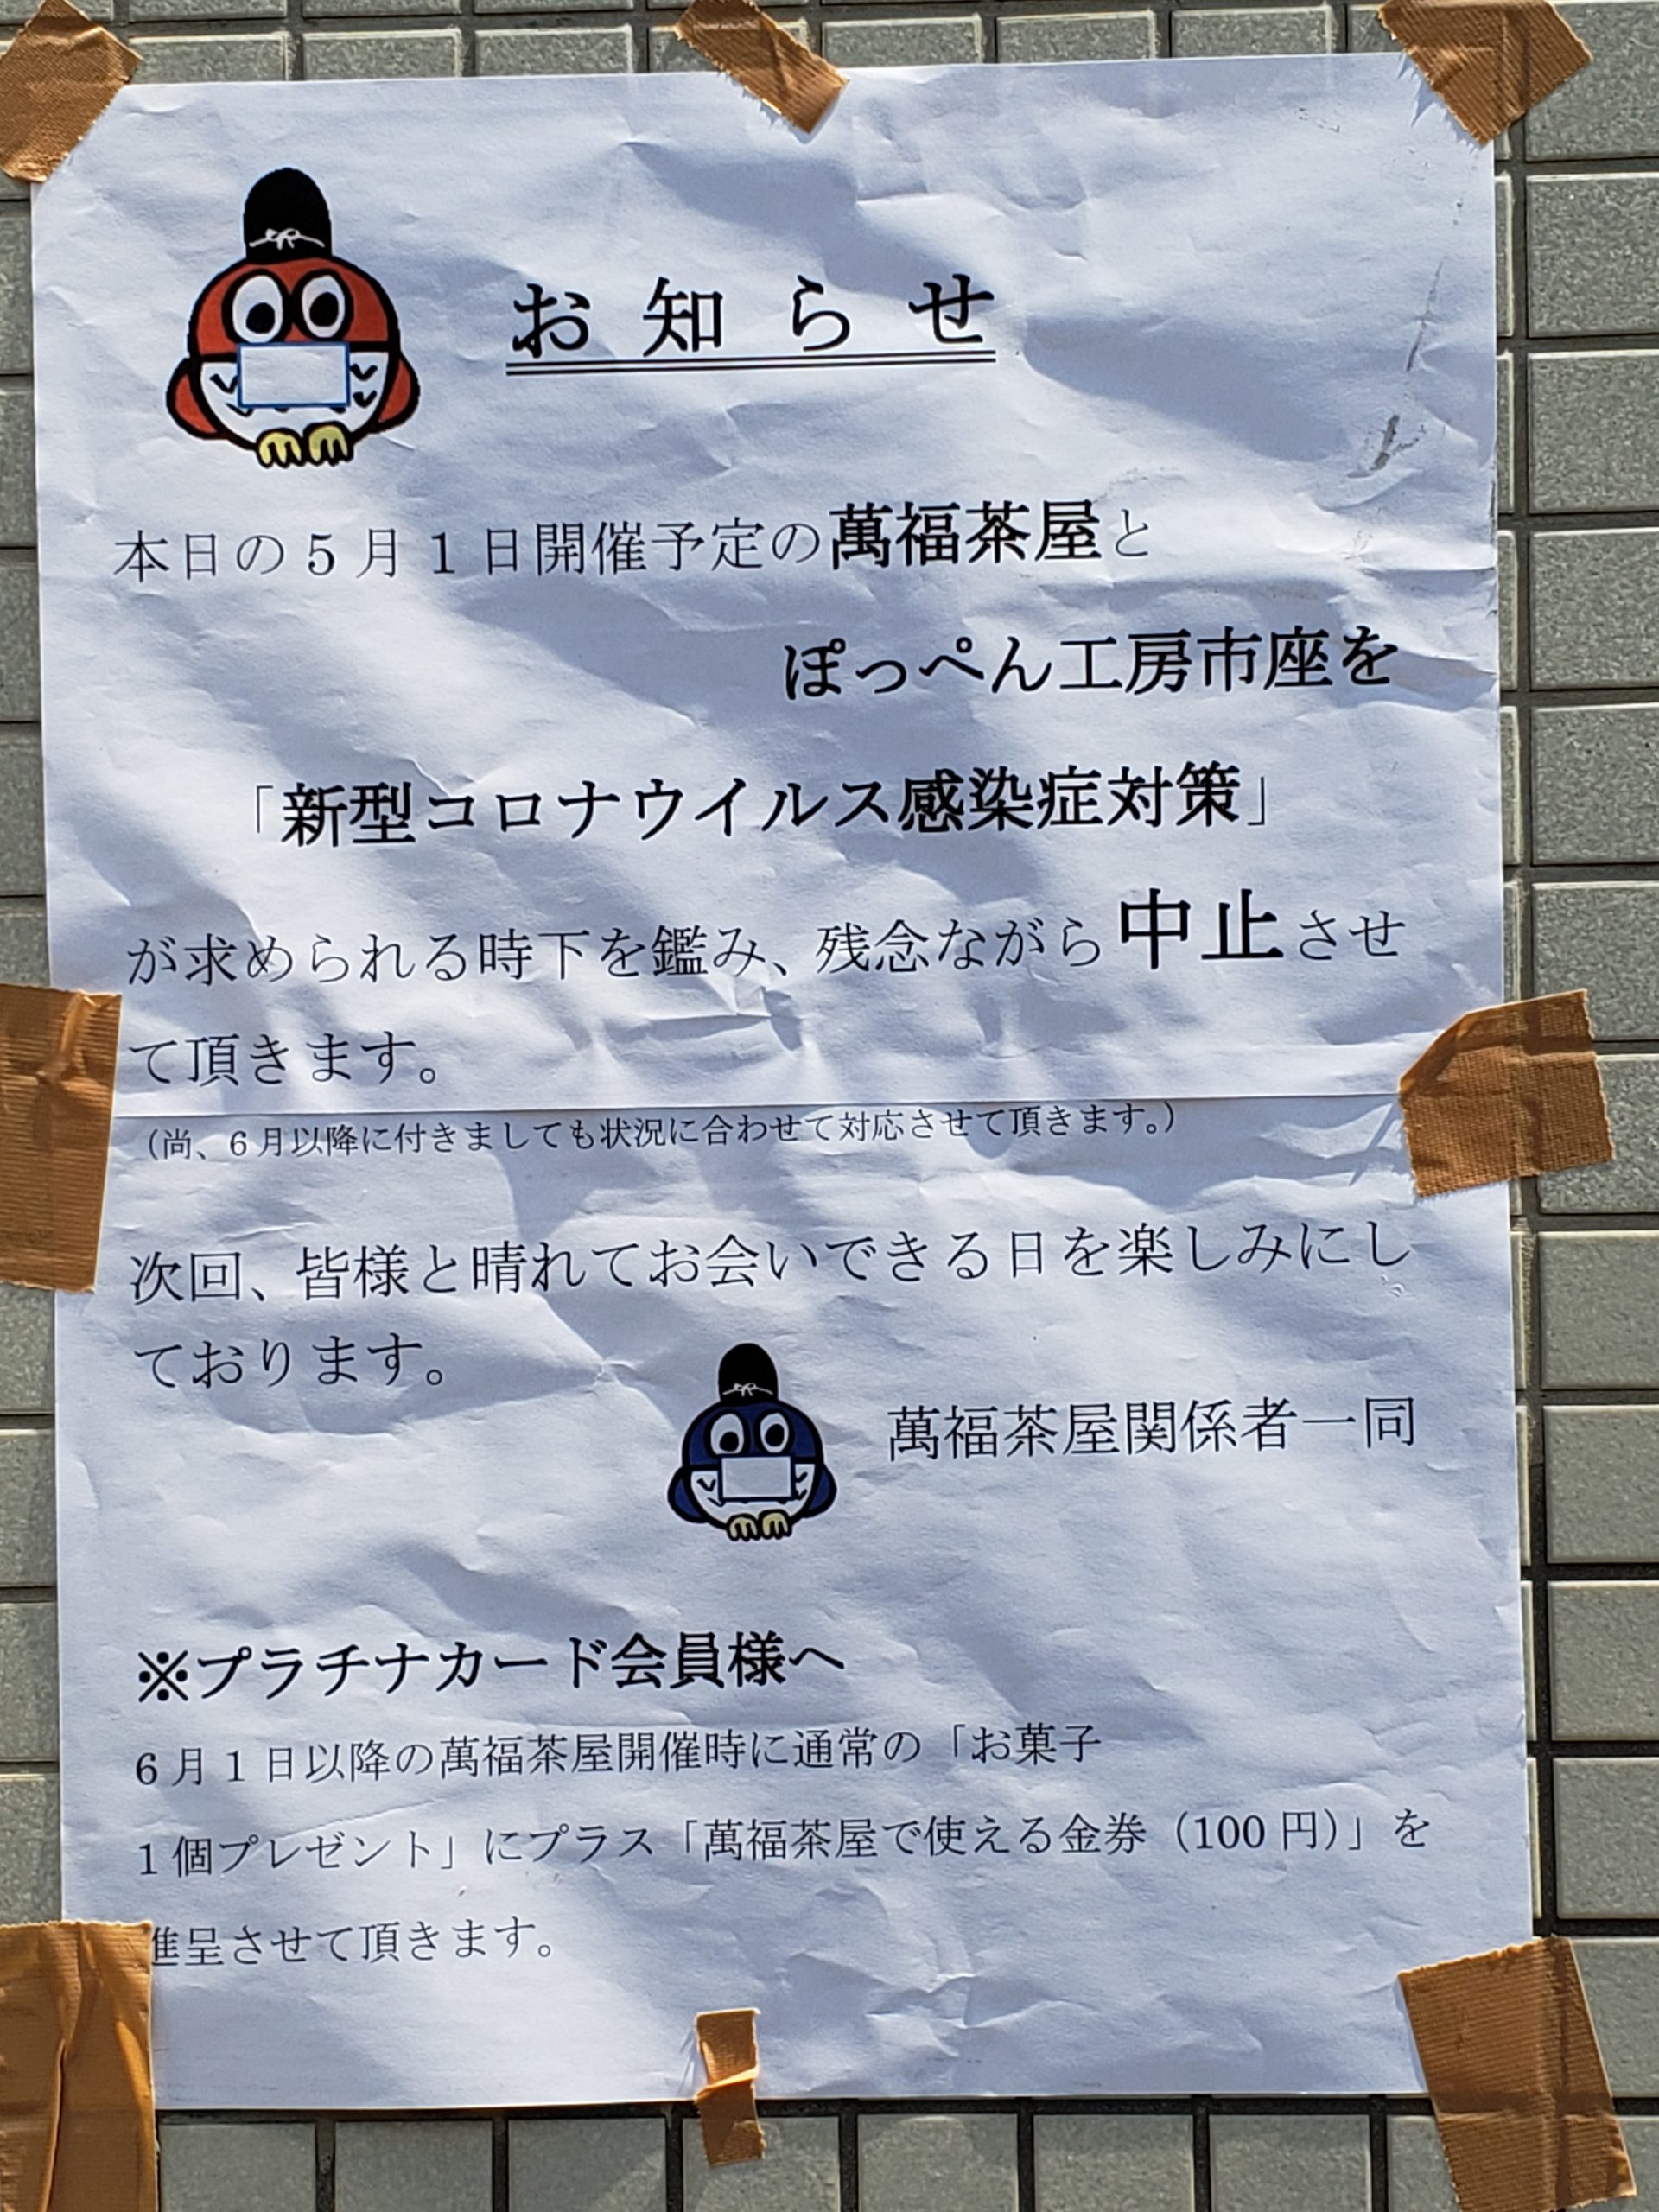 お知らせ
本日の5月1日開催予定の萬福茶屋と
ぽっぺん工房市座を
「新型コロナウイルス感染症対策」
が求められる時下を鑑み、残念ながら中止させ
て頂きます。
（尚、6月以降に付きましても状況に合わせて対応させて頂きます。）
次回、皆様と晴れてお会いできる日を楽しみにし
ております。
萬福茶屋関係者一同
※プラチナカード会員様へ
6月1日以降の萬福茶屋開催時に通常の「お菓子
1個プレゼント」にプラス「萬福茶屋で使える金券（100円）」を
進呈させて頂きます。